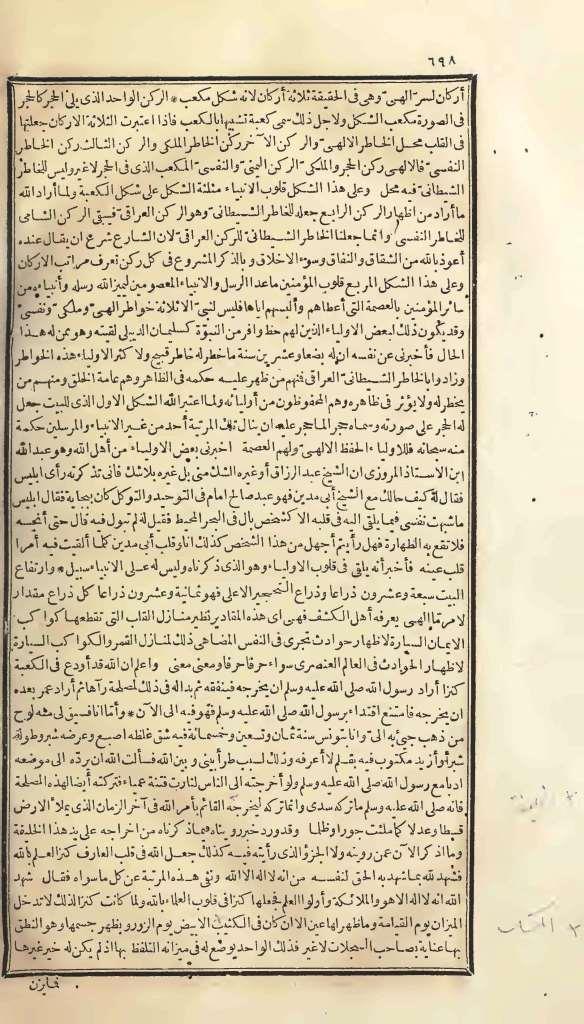 ٦٩٨
أركان لسر الهى وهى فى الحقيقة ثلاثة أركان لانه شكل مكعب * الركن الواحد الذى يلى الحجر كالحجر
فى الصورة مكعب الشكل ولاجل ذلك سمى كعبة تشبيها بالكعب فاذا اعتبرت الثلاثة الاركان جعلتها
فى القلب محل الخاطر الالهى والركن الآخر ركن الخاطر الملكى والركن الثالث ركن الخاطر
النفسى فالالهى ركن الحجر والملكى الركن اليمنى والنفسى المكعب الذى فى الحجر لاغير وليس للخاطر
الشيطانى فيه محل وعلى هذا الشكل قلوب الانبياء مثلثة الشكل على شكل الكعبة ولما أراد الله
ما أراد من اظهار الركن الرابع جعله للخاطر الشيطانى وهو الركن العراقى فيبقى الركن الشامى
للخاطر النفسى وانما جعلنا الخاطر الشيطانى للركن العراقى لان الشارع شرع ان يقال عنده
أعوذ بالله من الشقاق والنفاق وسوء الاخلاق وبالذكر المشروع فى كل ركن تعرف مراتب الاركان
وعلى هذا الشكل المربع قلوب المؤمنين ماعدا الرسل والانبياء المعصومين ليميز الله رسله وأنبياءه من
سائر المؤمنين بالعصمة التى أعطاهم وألبسهم اياها فليس لنبى الا ثلاثة خواطر الهى وملكى ونفسى
وقد يكون ذلك لبعض الاولياء الذين لهم حظ وافر من النبوّة كسليمان الدنبلى لقيته وهو ممن له هذا
الحال فأخبرنى عن نفسه ان له بضعا وعشرين سنة ما خطر له خاطر قبيح ولاكثر الاولياء هذه الخواطر
وزادوا بالخاطر الشيطانى العراقى فمنهم من ظهر عليه حكمه فى الظاهر وهم عامة الخلق ومنهم من
يخطر له ولا يؤثر فى ظاهره وهم المحفوظون من أوليائه ولما اعتبر الله الشكل الاول الذى للبيت جعل
له الحجر على صورته وسماه حجرا لما حجر عليه ان ينال تلك المرتبة أحد من غير الانبياء والمرسلين حكمة
منه سبحانه فللاولياء الحفظ الالهى ولهم العصمة اخبرنى بعض الاولياء من أهل الله وهو عبد الله
ابن الاستاذ المروزى ان الشيخ عبد الرزاق أو غيره الشك منى بل غيره بلاشك فانى تذكرته رأى ابليس
فقال له كيف حالك مع الشيخ أبى مدين فهو عبد صالح امام فى التوحيد والتوكل كان بجاية فقال ابليس
ما شبهت نفسى فيما يلقى اليه فى قلبه الا كشخص بال فى البحر المحيط فقيل له لم تبول فيه قال حتى أنجسه
فلا تقع به الطهارة فهل رأيتم أجهل من هذا الشخص كذلك انا وقلب أبى مدين كلما ألقيت فيه أمرا
قلب عينه فأخبر أنه يلقى فى قلوب الاولياء وهو الذى ذكرناه وليس له على الانبياء سبيل * وارتفاع
البيت سبعة وعشرون ذراعا وذراع التحجير الاعلى فهو ثمانية وعشرون ذراعا كل ذراع مقدار
لامر ما الهى يعرفه أهل الكشف فهى اى هذه المقادير نظير منازل القلب التى تقطعها كواكب
الايمان السيارة لاظهار حوادث تجرى فى النفس المضاهى ذلك لمنازل القمر والكواكب السيارة
لاظهار الحوادث فى العالم العنصرى سواء حرفا حرفا ومعنى معنى واعلم ان الله قد أودع فى الكعبة
كنزا أراد رسول الله صلى الله عليه وسلم ان يخرجه فينفقه ثم بدا له فى ذلك لمصلحة رآها ثم أراد عمر بعده
ان يخرجه فامتنع اقتداء برسول الله صلى الله عليه وسلم فهو فيه الى الآن * وأما انا فسيق لى منه لوح
من ذهب جىء به الىّ وانا بتونس سنة ثمان وتسعين وخمسمائة فيه شق غلظه اصبع وعرضه شبر وطوله
شبر أو أزيد مكتوب فيه بقلم لا أعرفه وذلك لسبب طرأ بينى وبين الله فسألت الله ان يرده الى موضعه
ادبا مع رسول الله صلى الله عليه وسلم ولو أخرجته الى الناس لثارت فتنة عمياء فتركته أيضا لهذه المصلحة
فانه صلى الله عليه وسلم ما تركه سدى وانما تركه ليخرجه القائم بأمر الله فى آخر الزمان الذى يملأ الارض
قسطا وعدلا كما ملئت جورا وظلما وقد ورد خبر رويناه فيما ذكرناه من اخراجه على يد هذا الخليفة
وما اذكر الآن عمن رويته ولا الجزؤ الذى رأيته فيه كذلك جعل الله فى قلب العارف كنز العلم بالله
فشهد لله بما شهد به الحق لنفسه من انه لااله الاالله ونفى هذه المرتبة عن كل ما سواه فقال شهد
الله انه لااله الاهو والملائكة وأولوا العلم فجعلها كنزا فى قلوب العلماء بالله ولما كانت كنزا لذلك لا تدخل
الميزان يوم القيامة وما يظهر لها عين الا ان كان فى الكثيب الابيض يوم الزور ويظهر جسمها وهو النطق
بها عناية بصاحب السجلات لاغير فذلك الواحد يوضع له فى ميزانه التلفظ بها اذ لم يكن له خير غيرها
فما يزن